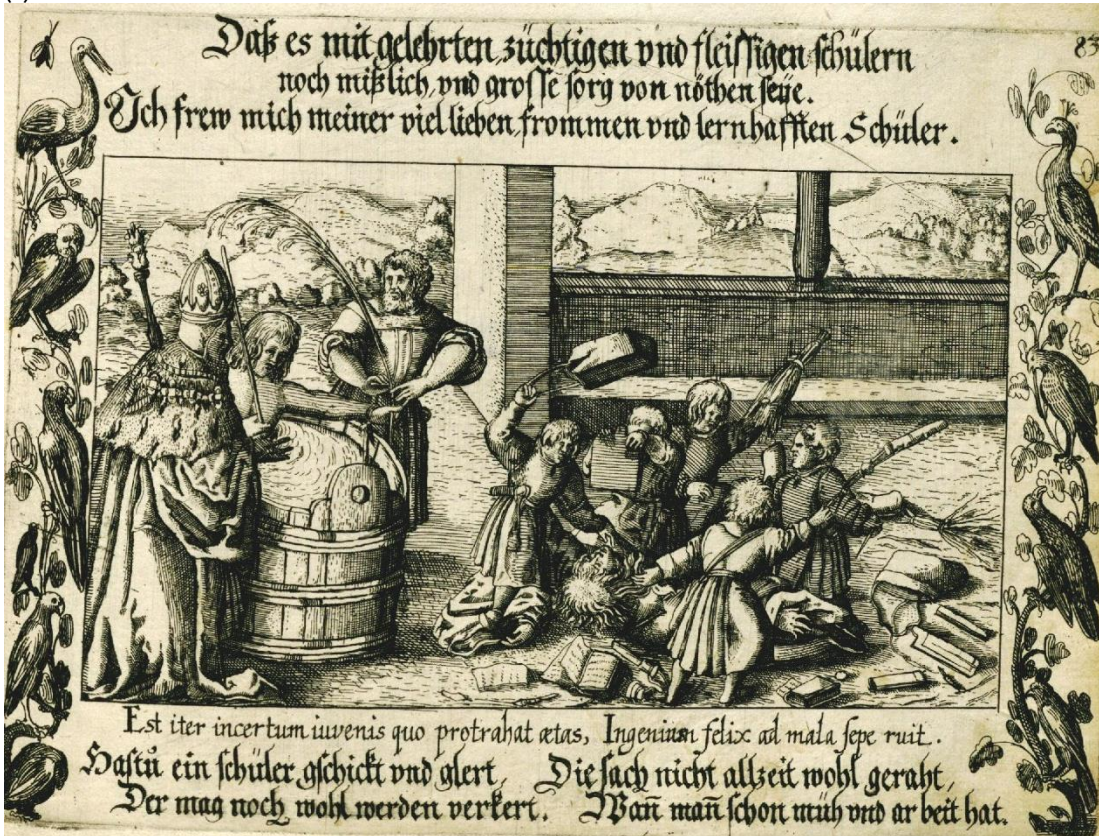 83
Daß es mit gelehrten, züchtigen vnd fleissigen schülern
noch mißlich, vnd grosse sorg von nöthen seÿe.
Ich frew mich meiner viel lieben, frommen vnd lernhafften Schüler.
Est iter incertum iuvenis quo protrahat ætas, Ingenium felix ad mala sepe ruit.
Hastu ein schüler, gschickt vnd glert, Die sach nicht allzeit wohl geraht,
Der mag noch wohl werden verkert. Wañ mañ schon müh vnd arbeit hat.